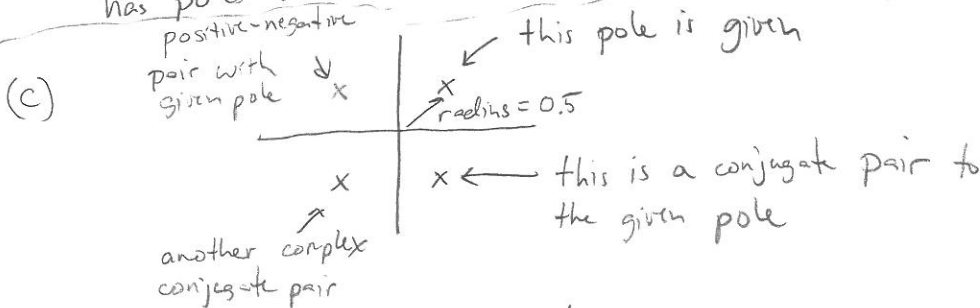 has po
positive-negative
pair with
given pole
(c)
this pole is given
radius = 0.5
this is a conjugate pair to
the given pole
another complex
conjugate pair